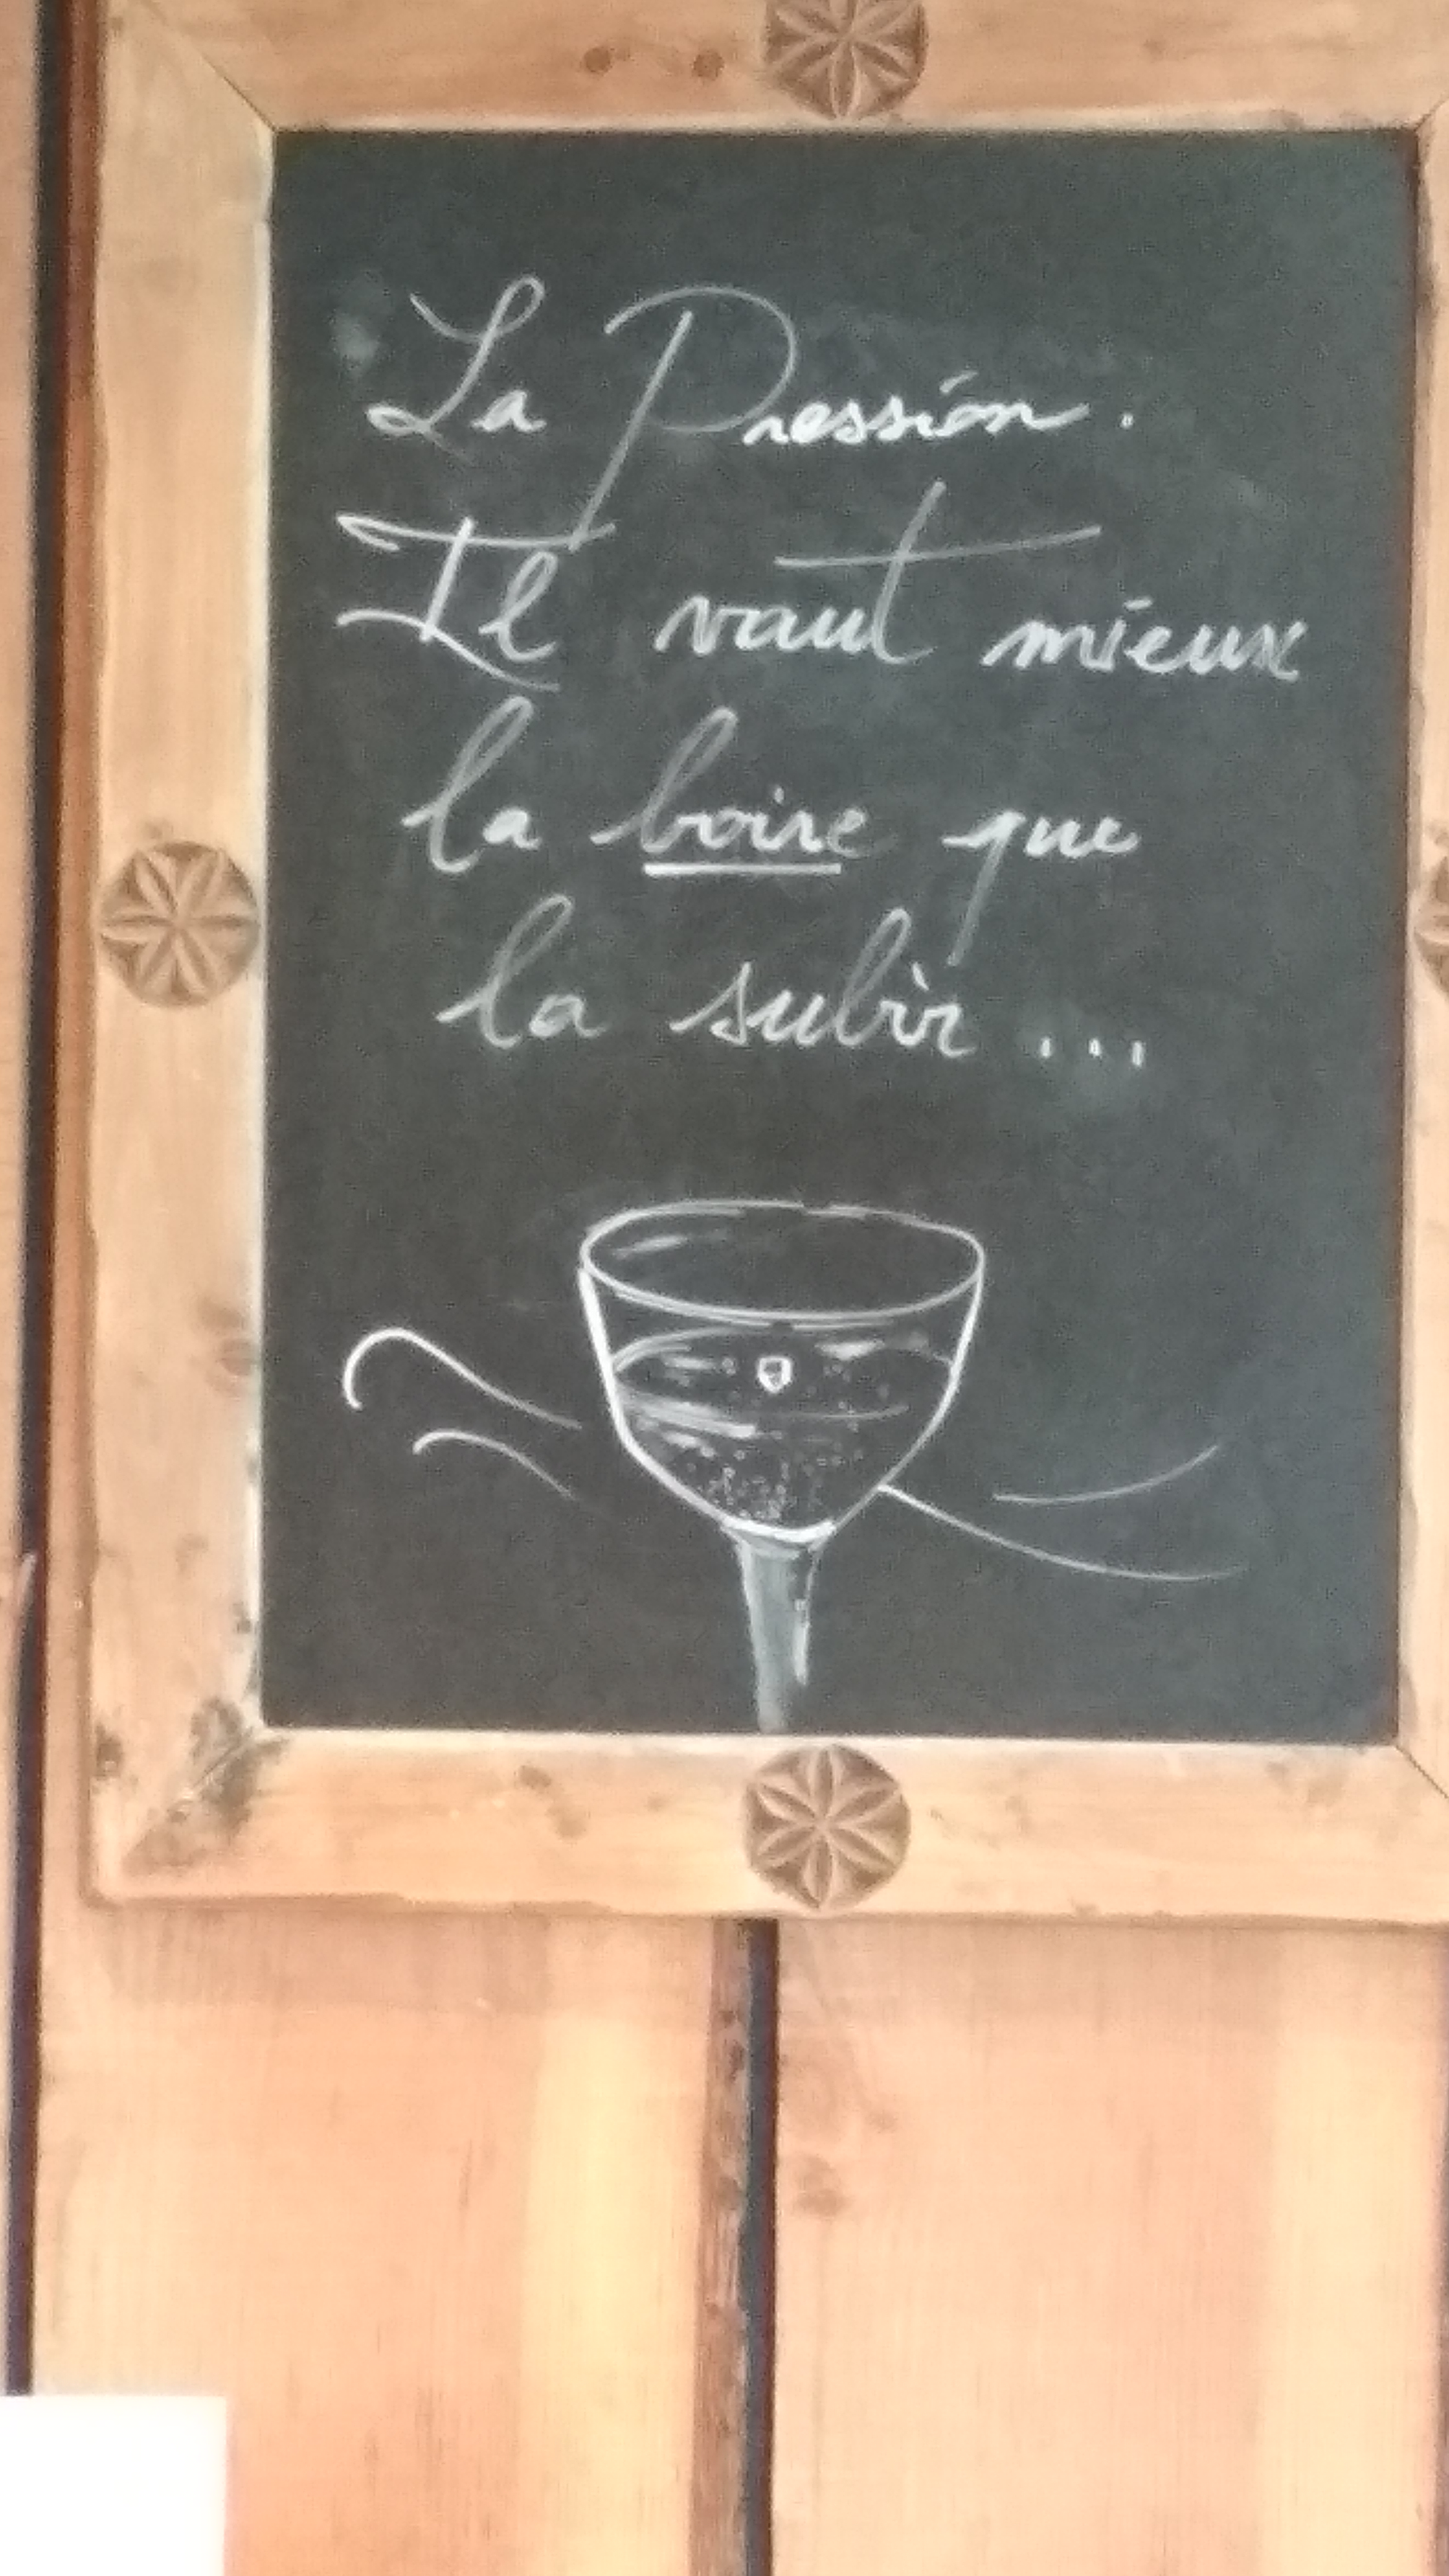 La Pression.
Il vaut mieux
la boire que
la subir...